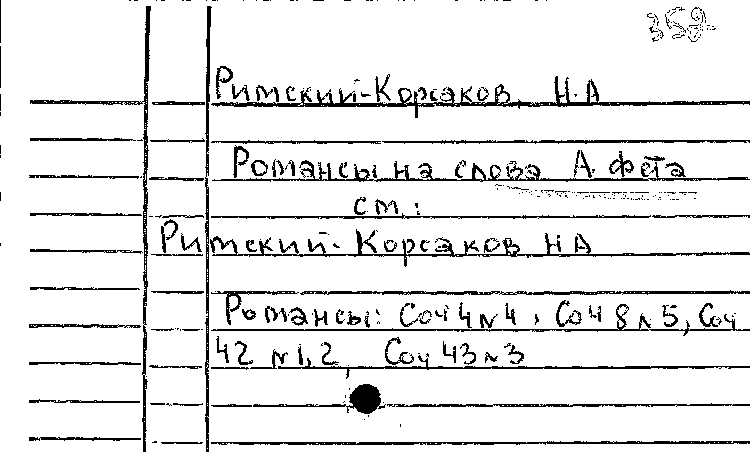 352
Римский-Корсаков, Н.А
Романсы на слова А. Фета
см.:
Римский-Корсаков НА
Романсы: Соч 4 №4, Соч 8 №5, Соч
42 №1,2, Соч 43 №3